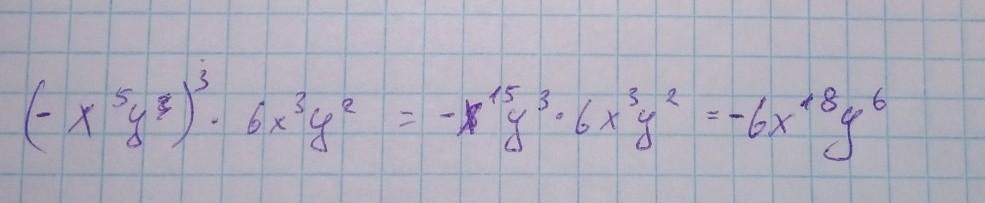 (-x⁵y)³ · 6x³y² = -x¹⁵y³ · 6x³y² = -6x¹⁸y⁶